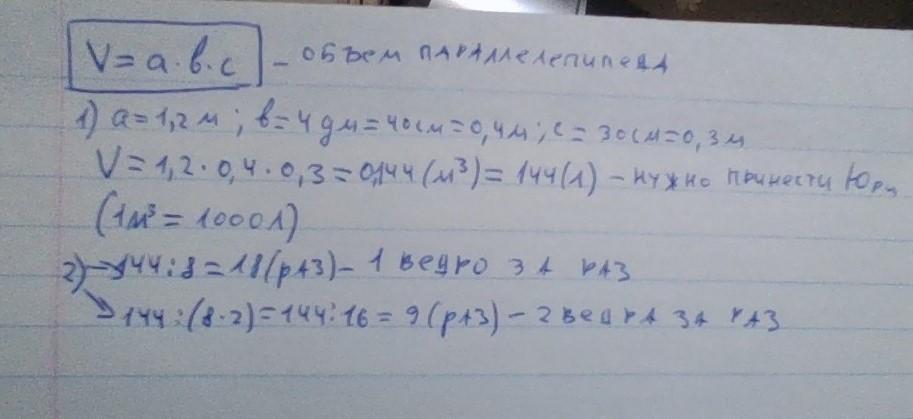 V = a · в · c - объем параллелепипеда
1) a = 1,2 м ; в = 4 дм = 40 см = 0,4 м ; c = 30 см = 0,3 м
V = 1,2 · 0,4 · 0,3 = 0,144 (м³) = 144 (л) - нужно принести Юри
(1 м³ = 1000 л)
2) → 144 : 8 = 18 (раз) - 1 ведро за раз
↘ 144 : (8 · 2) = 144 : 16 = 9 (раз) - 2 ведра за раз